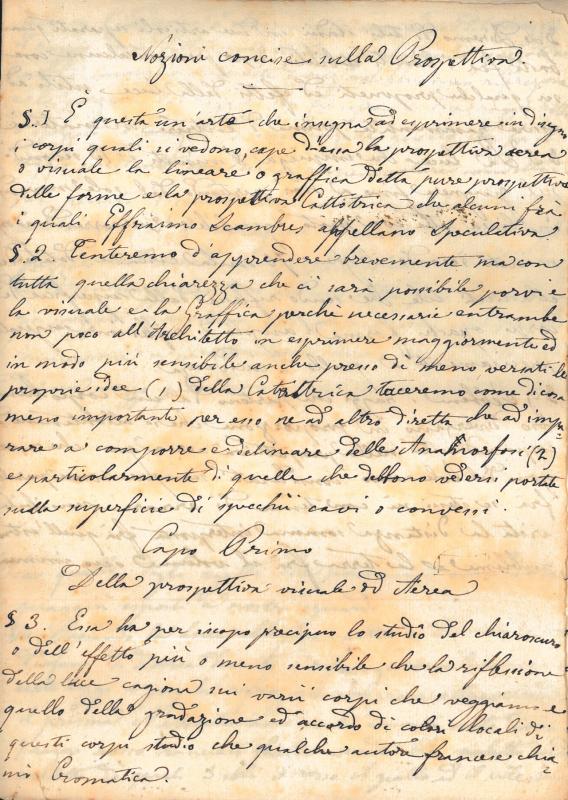 Nozioni concise sulla Prospettiva.
§. 1 È questa un'arte che insegna ad esprimere in disegno
i corpi quali si vedono, cape d'essa la prospettiva aerea
o visuale la lineare o graffica detta pure prospettiva
delle forme e la prospettiva Cattotrica che alcuni frà
i quali Effraimo Scambres appellano Speculativa.
§. 2. Tenteremo d'apprendere brevemente ma con
tutta quella chiarezza che ci sarà possibile porvi e
la visuale e la Graffica perchè necessarie entrambe
non poco all'Architetto in esprimere maggiormente ed
in modo più sensibile anche presso di meno versati le
proprie idee (1) della Catottrica taceremo come di cosa
meno importante per esso ne ad altro diretta che ad impa-
rare a comporre e delineare delle Anamorfosi (2)
e particolarmente di quelle che debbono vedersi portate
sulla superficie di specchii cavi o convessi.
Capo Primo
Della prospettiva visuale ed Aerea
§ 3. Essa ha per iscopo precipuo lo studio del chiaroscuro
o dell'effetto più o meno sensibile che la riflessione
della luce cagiona sui varii corpi che veggiamo e
quello della gradazione ed accordo di colori locali di
questi corpi studio che qualche autore francese chia-
mi Cromatica.